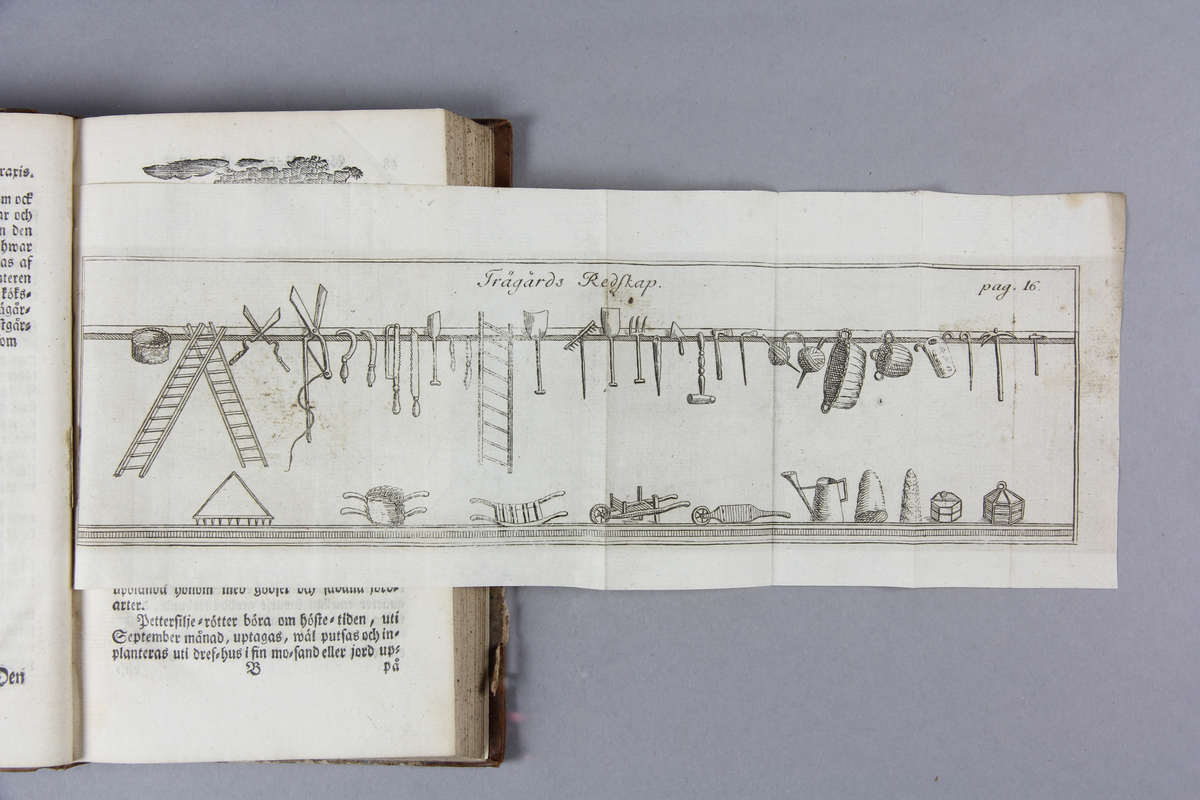 raxis.
m ock
ar och
n den
hwar
as af
nteren
köks-
ägår-
stgårs
om
Den
Trägårds Redskap.
pag. 16.
arter.
Pettersilje-rötter böra om höste-tiden, uti
September månad, uptagas, wäl putsas och in-
planteras uti dref-hus i fin mo-sand eller jord up-
B på